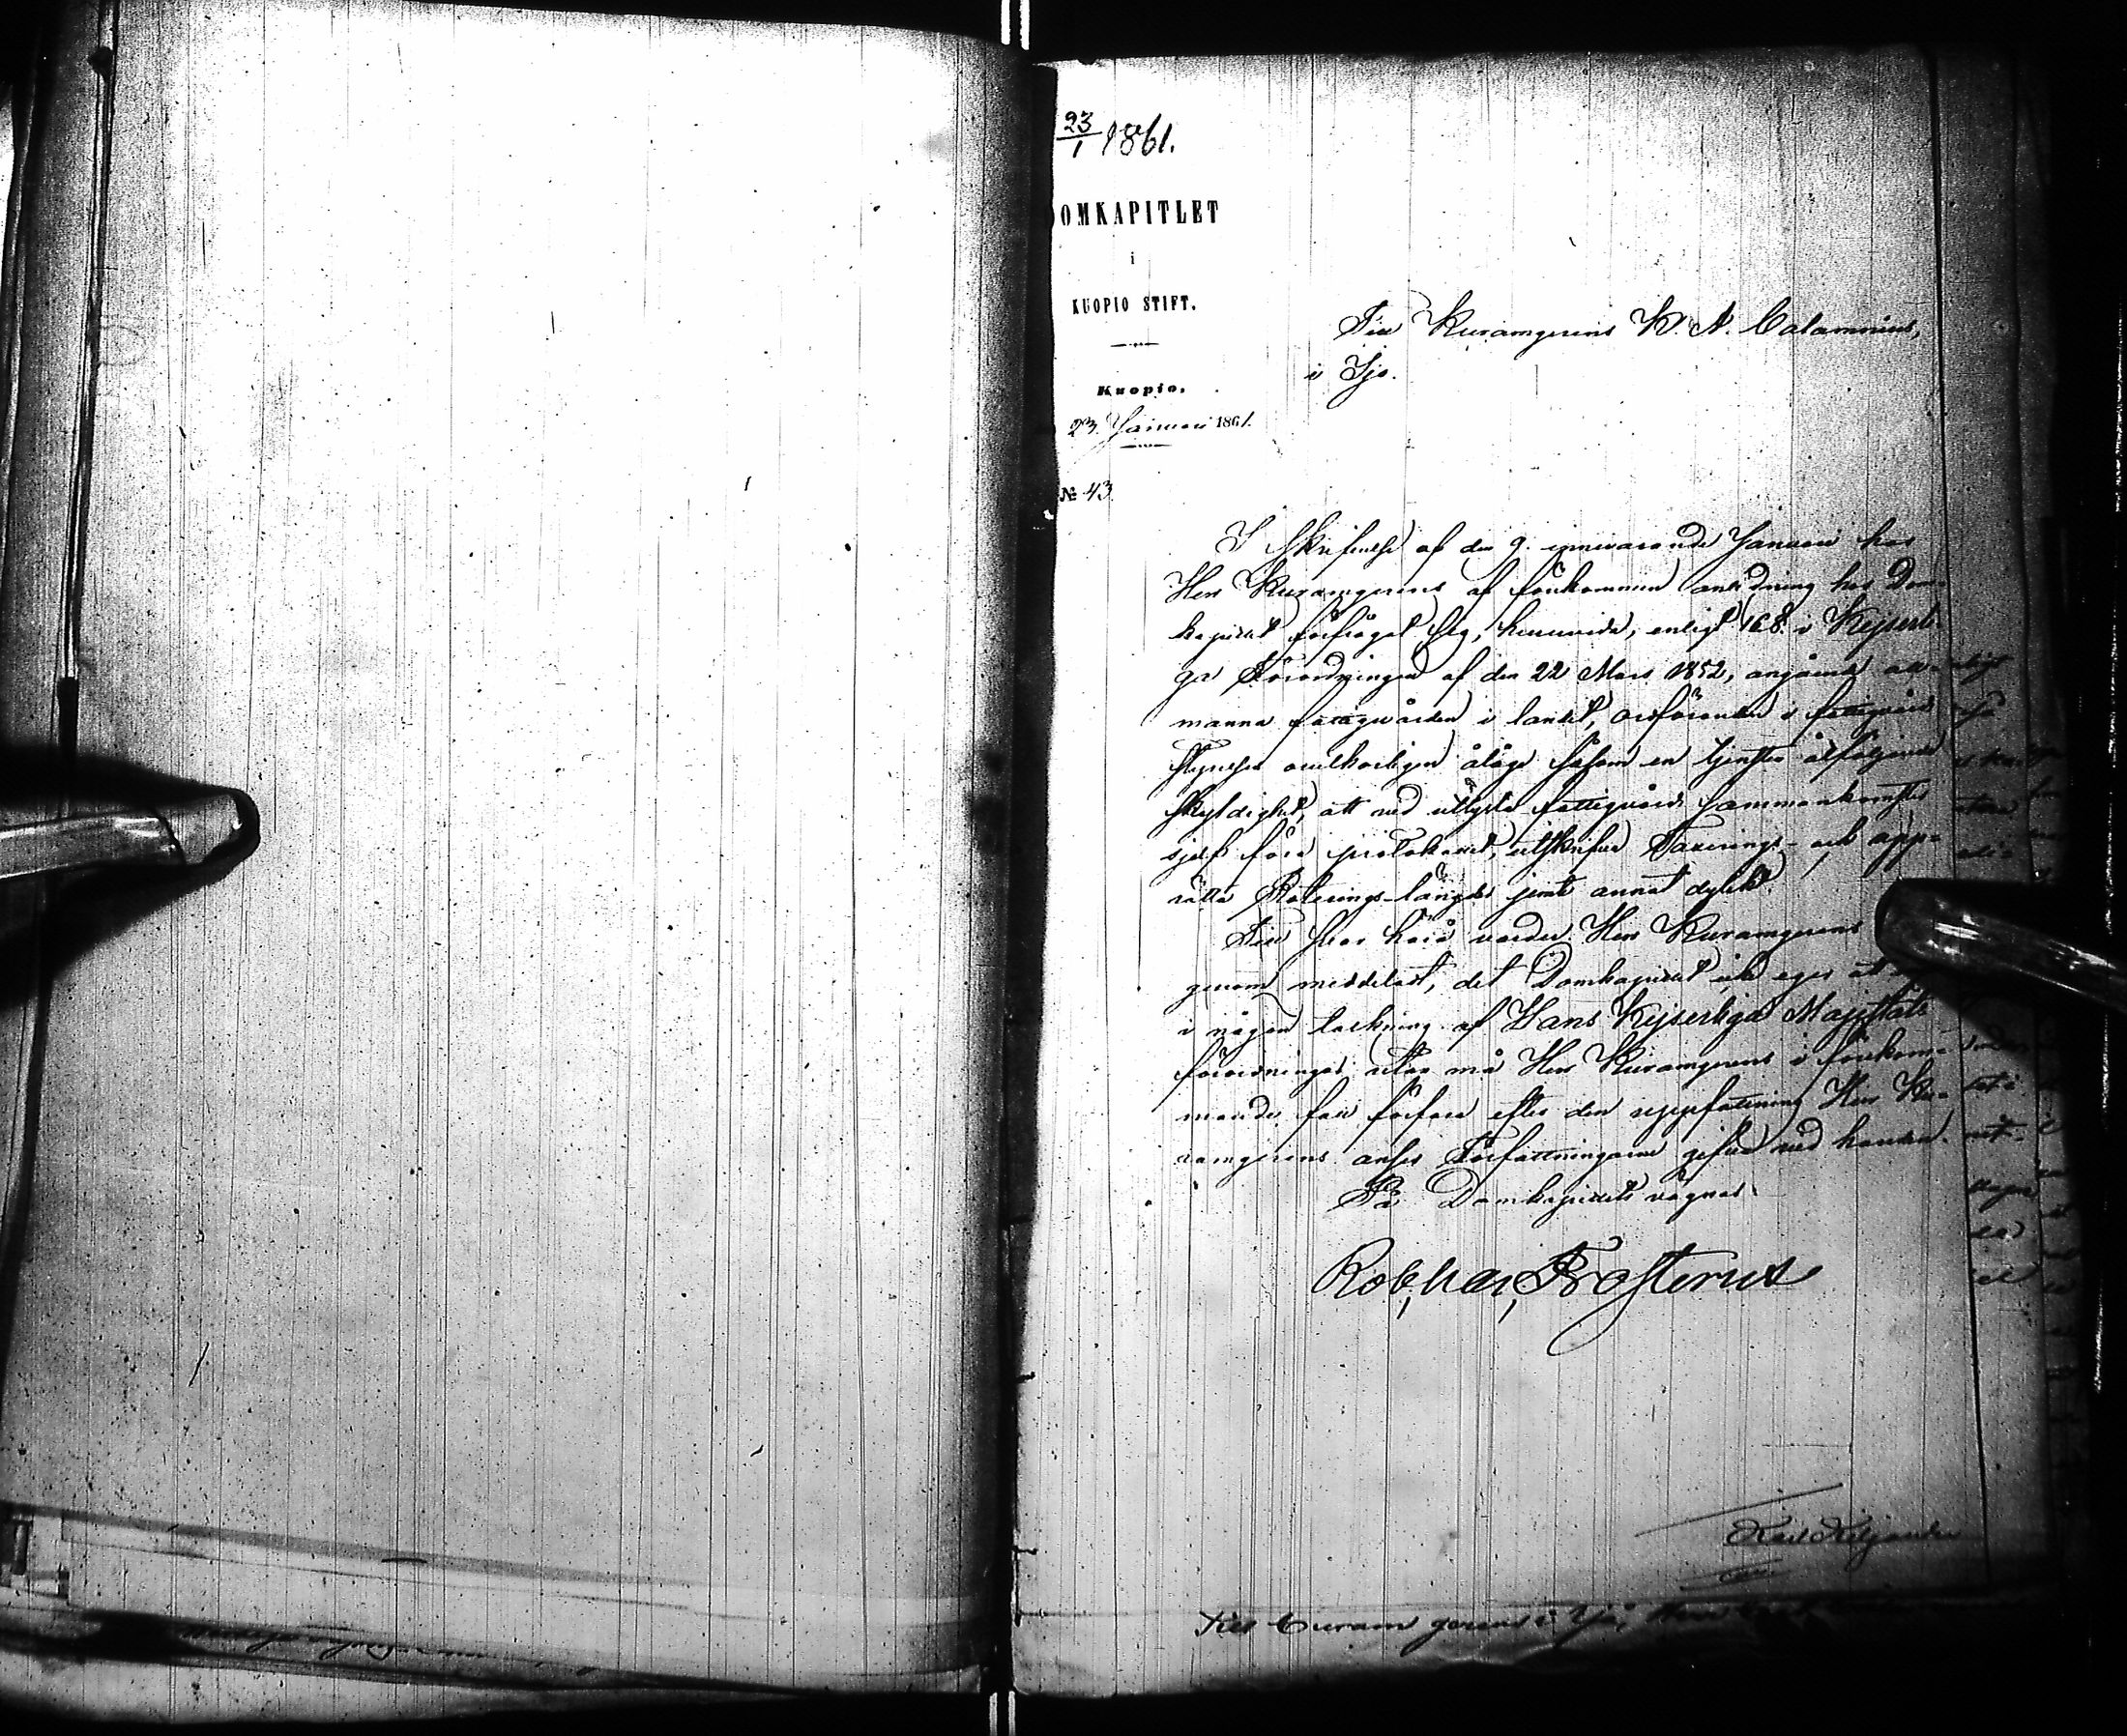 23/1 1861.
OMKAPITLET
i
KUOPIO STIFT.
Kuopio,
23. Januari 1861.
№ 43.
Till Kuramgerens K. A. Calamnius,
i Ijo.
I skrifvelse af den 9. innevarande Januari har
Herr Kuramgerens af förekommen anledning hos Dom-
kapitlet förfrågat sig, huruvida, enligt 16 §. i Kejserli-
ga Förordningen af den 22 Mars 1852, angående all-
männa fattigvården i landet, ordföranden i fattigvårds
styrelsen ovilkorligen ålåge såsom en tjensten åtföljande
skyldighet, att vid utlyste fattigvårds sammankomster
sjelf föra protokollet, utskrifva Taxerings- och upp-
rätta Roterings-längder jemte annat dylikt.
Till svar härå varder Herr Kuramgerens
genom meddeladt, det Domkapitlet icke eger att
i någon tolkning af Hans Kejserliga Majestäts
förordningar utan må Herr Kuramgerens i förekom-
mande fall förfara efter den uppfattning Herr Ku-
ramgerens anser Författningarne gifva vid handen.
På Domkapitlets vägnar:
Rob, Val, Frosterus
Karl Kiljander
Till Curam gerens i Ijo,